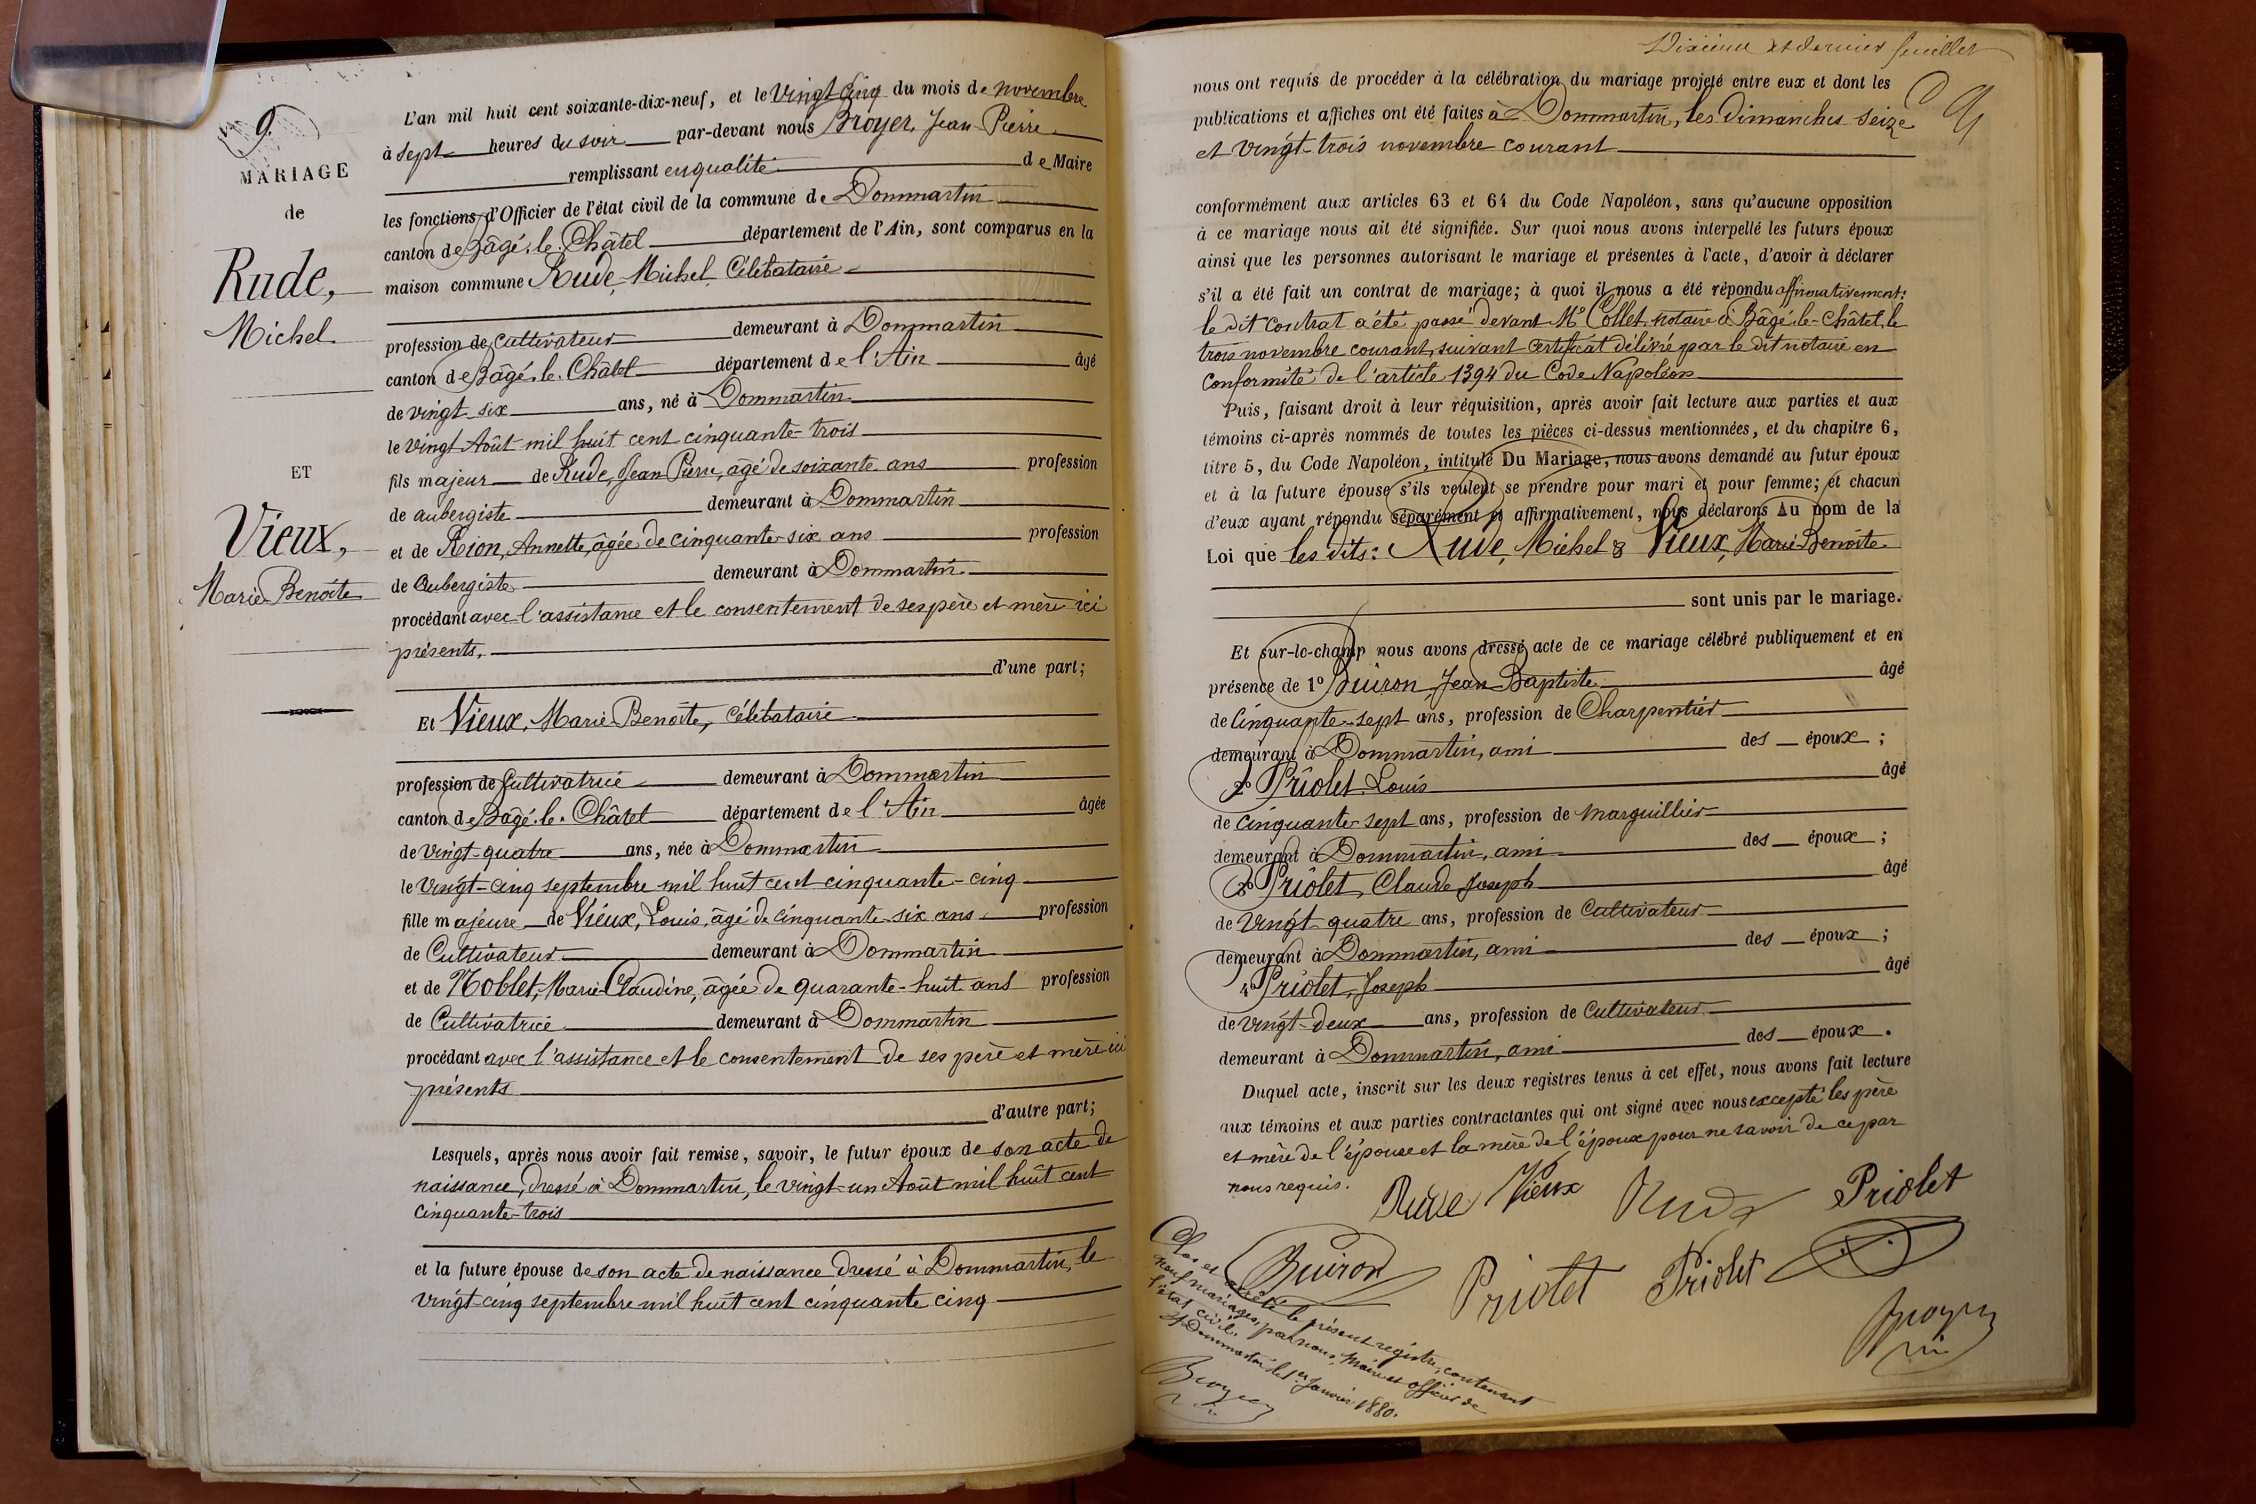 9.
MARIAGE
de
Rude,
Michel
ET
Vieux,
Marie Benoîte
L'an mil huit cent soixante-dix-neuf, et le vingt cinq du mois de novembre
à sept heures du soir par-devant nous Broyer, Jean Pierre
remplissant en qualité de Maire
les fonctions d'Officier de l'état civil de la commune de Dommartin
canton de Bâgé-le-Châtel département de l'Ain, sont comparus en la
maison commune Rude, Michel, Célibataire
profession de cultivateur demeurant à Dommartin
canton de Bâgé-le-Châtel département de l'Ain âgé
de vingt six ans, né à Dommartin
le vingt Août mil huit cent cinquante-trois
fils majeur de Rude, Jean Pierre, âgé de soixante ans profession
de aubergiste demeurant à Dommartin
et de Rion, Annette, âgée de cinquante-six ans profession
de Aubergiste demeurant à Dommartin
procédant avec l'assistance et le consentement de ses père et mère ici
présents, d'une part;
Et Vieux, Marie Benoîte, célibataire
profession de Cultivatrice demeurant à Dommartin
canton de Bâgé-le-Châtel département de l'Ain âgée
de vingt-quatre ans, née à Dommartin
le vingt-cinq septembre mil huit cent cinquante-cinq
fille majeure de Vieux, Louis, âgé de cinquante-six ans profession
de Cultivateur demeurant à Dommartin
et de Noblet, Marie Claudine, âgée de quarante-huit ans profession
de Cultivatrice demeurant à Dommartin
procédant avec l'assistance et le consentement de ses père et mère ici
présents
d'autre part;
Lesquels, après nous avoir fait remise, savoir, le futur époux de son acte de
naissance, dressé à Dommartin, le vingt-un Août mil huit cent
cinquante-trois
et la future épouse de son acte de naissance dressé à Dommartin, le
vingt-cinq septembre mil huit cent cinquante cinq
Dixième et dernier feuillet
nous ont requis de procéder à la célébration du mariage projeté entre eux et dont les
publications et affiches ont été faites à Dommartin, les dimanches seize
et vingt-trois novembre courant
conformément aux articles 63 et 64 du Code Napoléon, sans qu'aucune opposition
à ce mariage nous ait été signifiée. Sur quoi nous avons interpellé les futurs époux
ainsi que les personnes autorisant le mariage et présentes à l'acte, d'avoir à déclarer
s'il a été fait un contrat de mariage; à quoi il nous a été répondu affirmativement:
le dit contrat a été passé devant Me Collet, notaire à Bâgé-le-Châtel, le
trois novembre courant, suivant certificat délivré par le dit notaire en
conformité de l'article 1394 du Code Napoléon
Puis, faisant droit à leur réquisition, après avoir fait lecture aux parties et aux
témoins ci-après nommés de toutes les pièces ci-dessus mentionnées, et du chapitre 6,
titre 5, du Code Napoléon, intitulé Du Mariage, nous avons demandé au futur époux
et à la future épouse s'ils veulent se prendre pour mari et pour femme; et chacun
d'eux ayant répondu séparément et affirmativement, nous déclarons Au nom de la
Loi que les dits: Rude, Michel & Vieux, Marie Benoîte
sont unis par le mariage.
Et sur-le-champ nous avons dressé acte de ce mariage célébré publiquement et en
présence de 1º Buiron, Jean Baptiste âgé
de Cinquante-sept ans, profession de Charpentier
demeurant à Dommartin, ami des époux;
2º Priolet, Louis âgé
de cinquante-sept ans, profession de Marguillier
demeurant à Dommartin, ami des époux;
3º Priolet, Claude Joseph âgé
de vingt quatre ans, profession de Cultivateur
demeurant à Dommartin, ami des époux;
4º Priolet, Joseph âgé
de vingt-deux ans, profession de Cultivateur
demeurant à Dommartin, ami des époux.
Duquel acte, inscrit sur les deux registres tenus à cet effet, nous avons fait lecture
aux témoins et aux parties contractantes qui ont signé avec nous excepté les père
et mère de l'épouse et la mère de l'époux pour ne savoir de ce par
nous requis.
Rude Vieux Rude Priolet
Buiron Priolet Priolet
Broyer
Clos et arrêté le présent registre, contenant
neuf mariages, par nous, Maire et officier de
l'état civil.
A Dommartin le 1er Janvier 1880.
Broyer